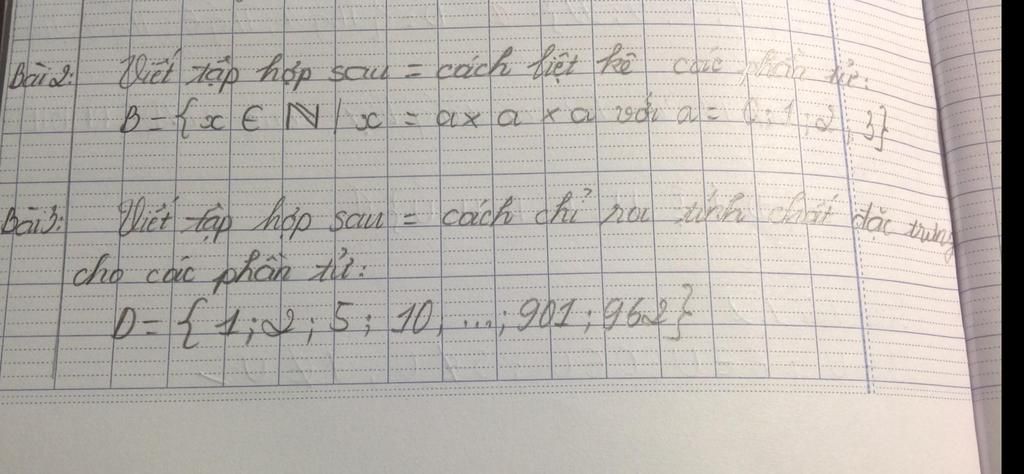 Bài 2: Viết tập hợp sau = cách liệt kê các phần tử:
B = { x ∈ ℕ / x = a x a x a với a = 0 ; 1 ; 2 ; 3}
Bài 3: Viết tập hợp sau = cách chỉ ra tính chất đặc trưng
cho các phần tử:
D = { 1 ; 2 ; 5 ; 10, ...; 901 ; 962}